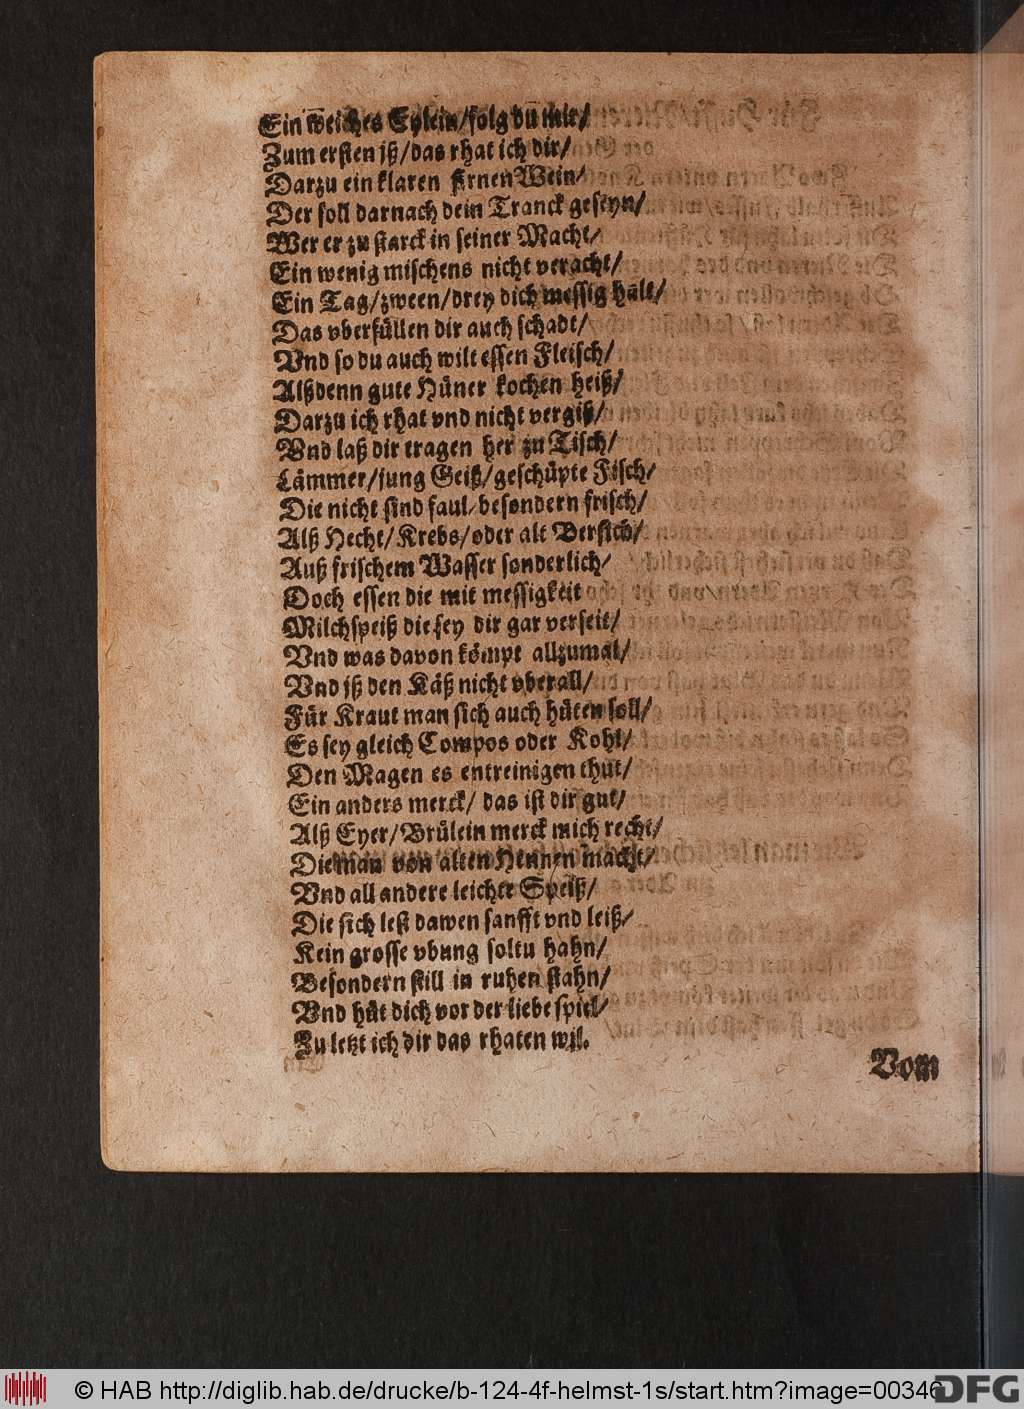 Ein weiches Eylein/folg du mir/
Zum ersten jß/das rhat ich dir/
Darzu ein klaren firnen Wein/
Der soll darnach dein Tranck geseyn/
Wer er zu starck in seiner Macht/
Ein wenig mischens nicht veracht/
Ein Tag/zween/drey dich messig halt/
Das vberfüllen dir auch schadt/
Vnd so du auch wilt essen Fleisch/
Alßdenn gute Hüner kochen heiß/
Darzu ich rhat vnd nicht vergiß/
Vnd laß dir tragen her zu Tisch/
Lämmer/jung Geiß/geschüpte Fisch/
Die nicht sind faul/besondern frisch/
Alß Hecht/Krebs/oder alt Bersich/
Auß frischem Wasser sonderlich/
Doch essen die mit messigkeit
Milchspeiß die sey dir gar verseit/
Vnd was davon kömpt allzumal/
Vnd jß den Käß nicht vberall/
Für Kraut man sich auch hüten soll/
Es sey gleich Compos oder Kohl/
Den Magen es entreinigen thut/
Ein anders merck/ das ist dir gut/
Alß Eyer/Brülein merck mich recht/
Die man von alten Hennen macht/
Vnd all andere leichte Speiß/
Die sich lest dawen sanfft vnd leiß/
Kein grosse vbung soltu hahn/
Besondern still in ruhen stahn/
Vnd hüt dich vor der liebe spiel/
Zu letzt ich dir das rhaten wil.
Vom
© HAB http://diglib.hab.de/drucke/b-124-4f-helmst-1s/start.htm?image=00346
DFG